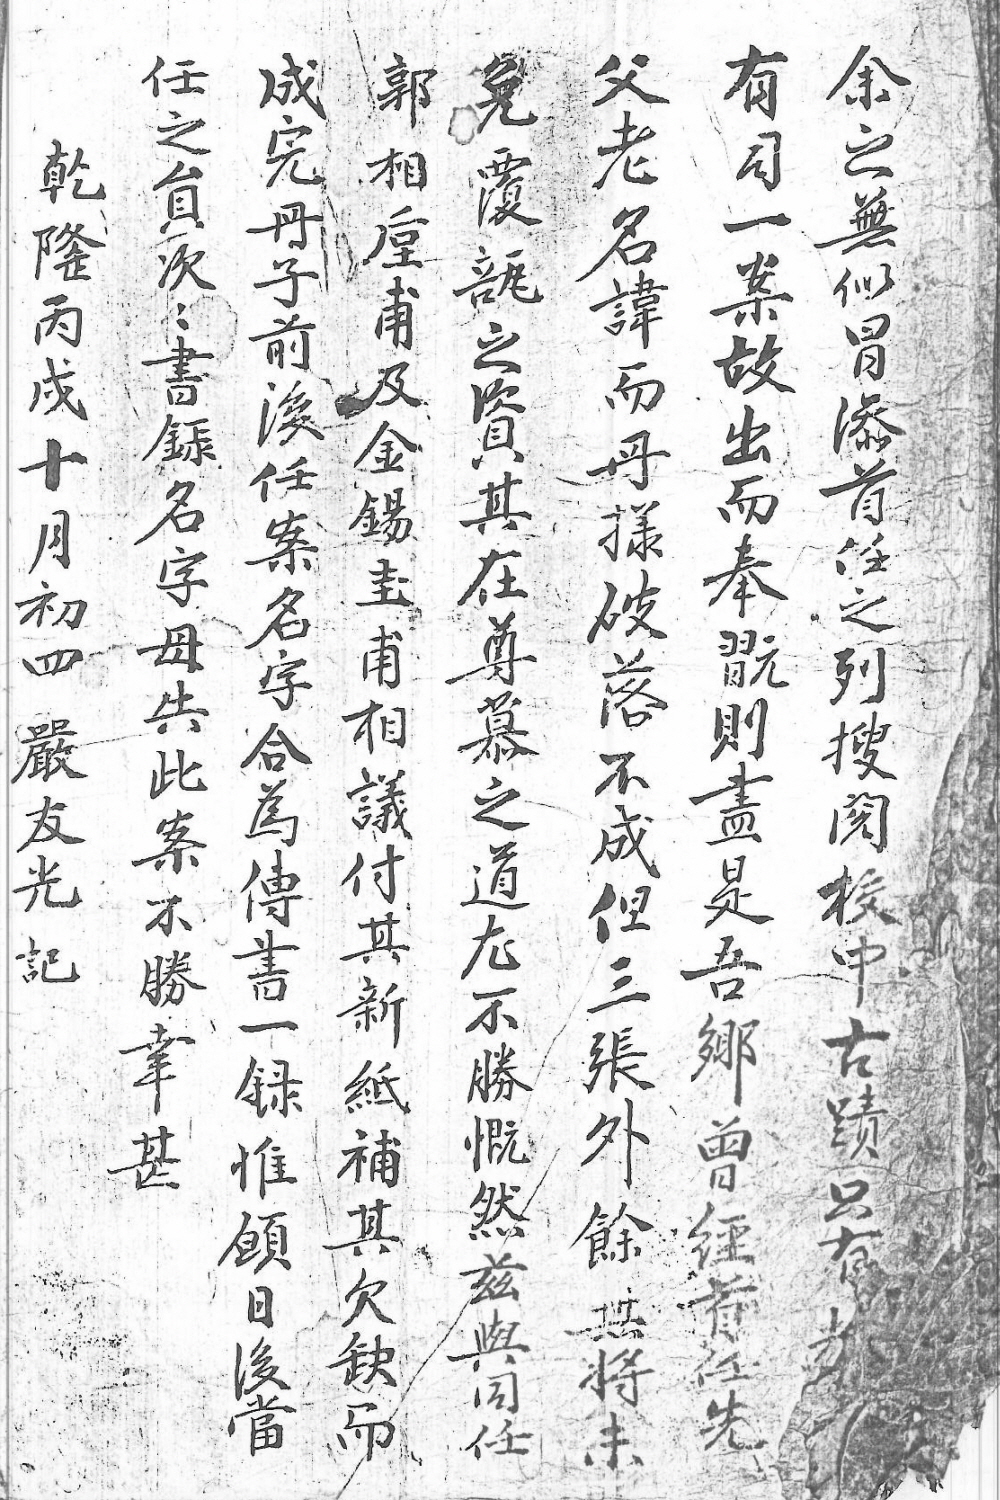 余之無似冒添首任之列搜閱校中古蹟只有
有司一案故出而奉翫則盡是吾鄉曾經首任先
父老名諱而冊樣破落不成但三張外餘共將未
免覆瓿之資其在尊慕之道尤不勝慨然玆與同任
郭相垕甫及金錫圭甫相議付其新紙補其欠缺而
成完冊子前後任案名字合爲傳書一録惟願日後當
任之員次〻書錄名字毋失此案不勝幸甚
乾隆丙戌十月初四 嚴友光 記